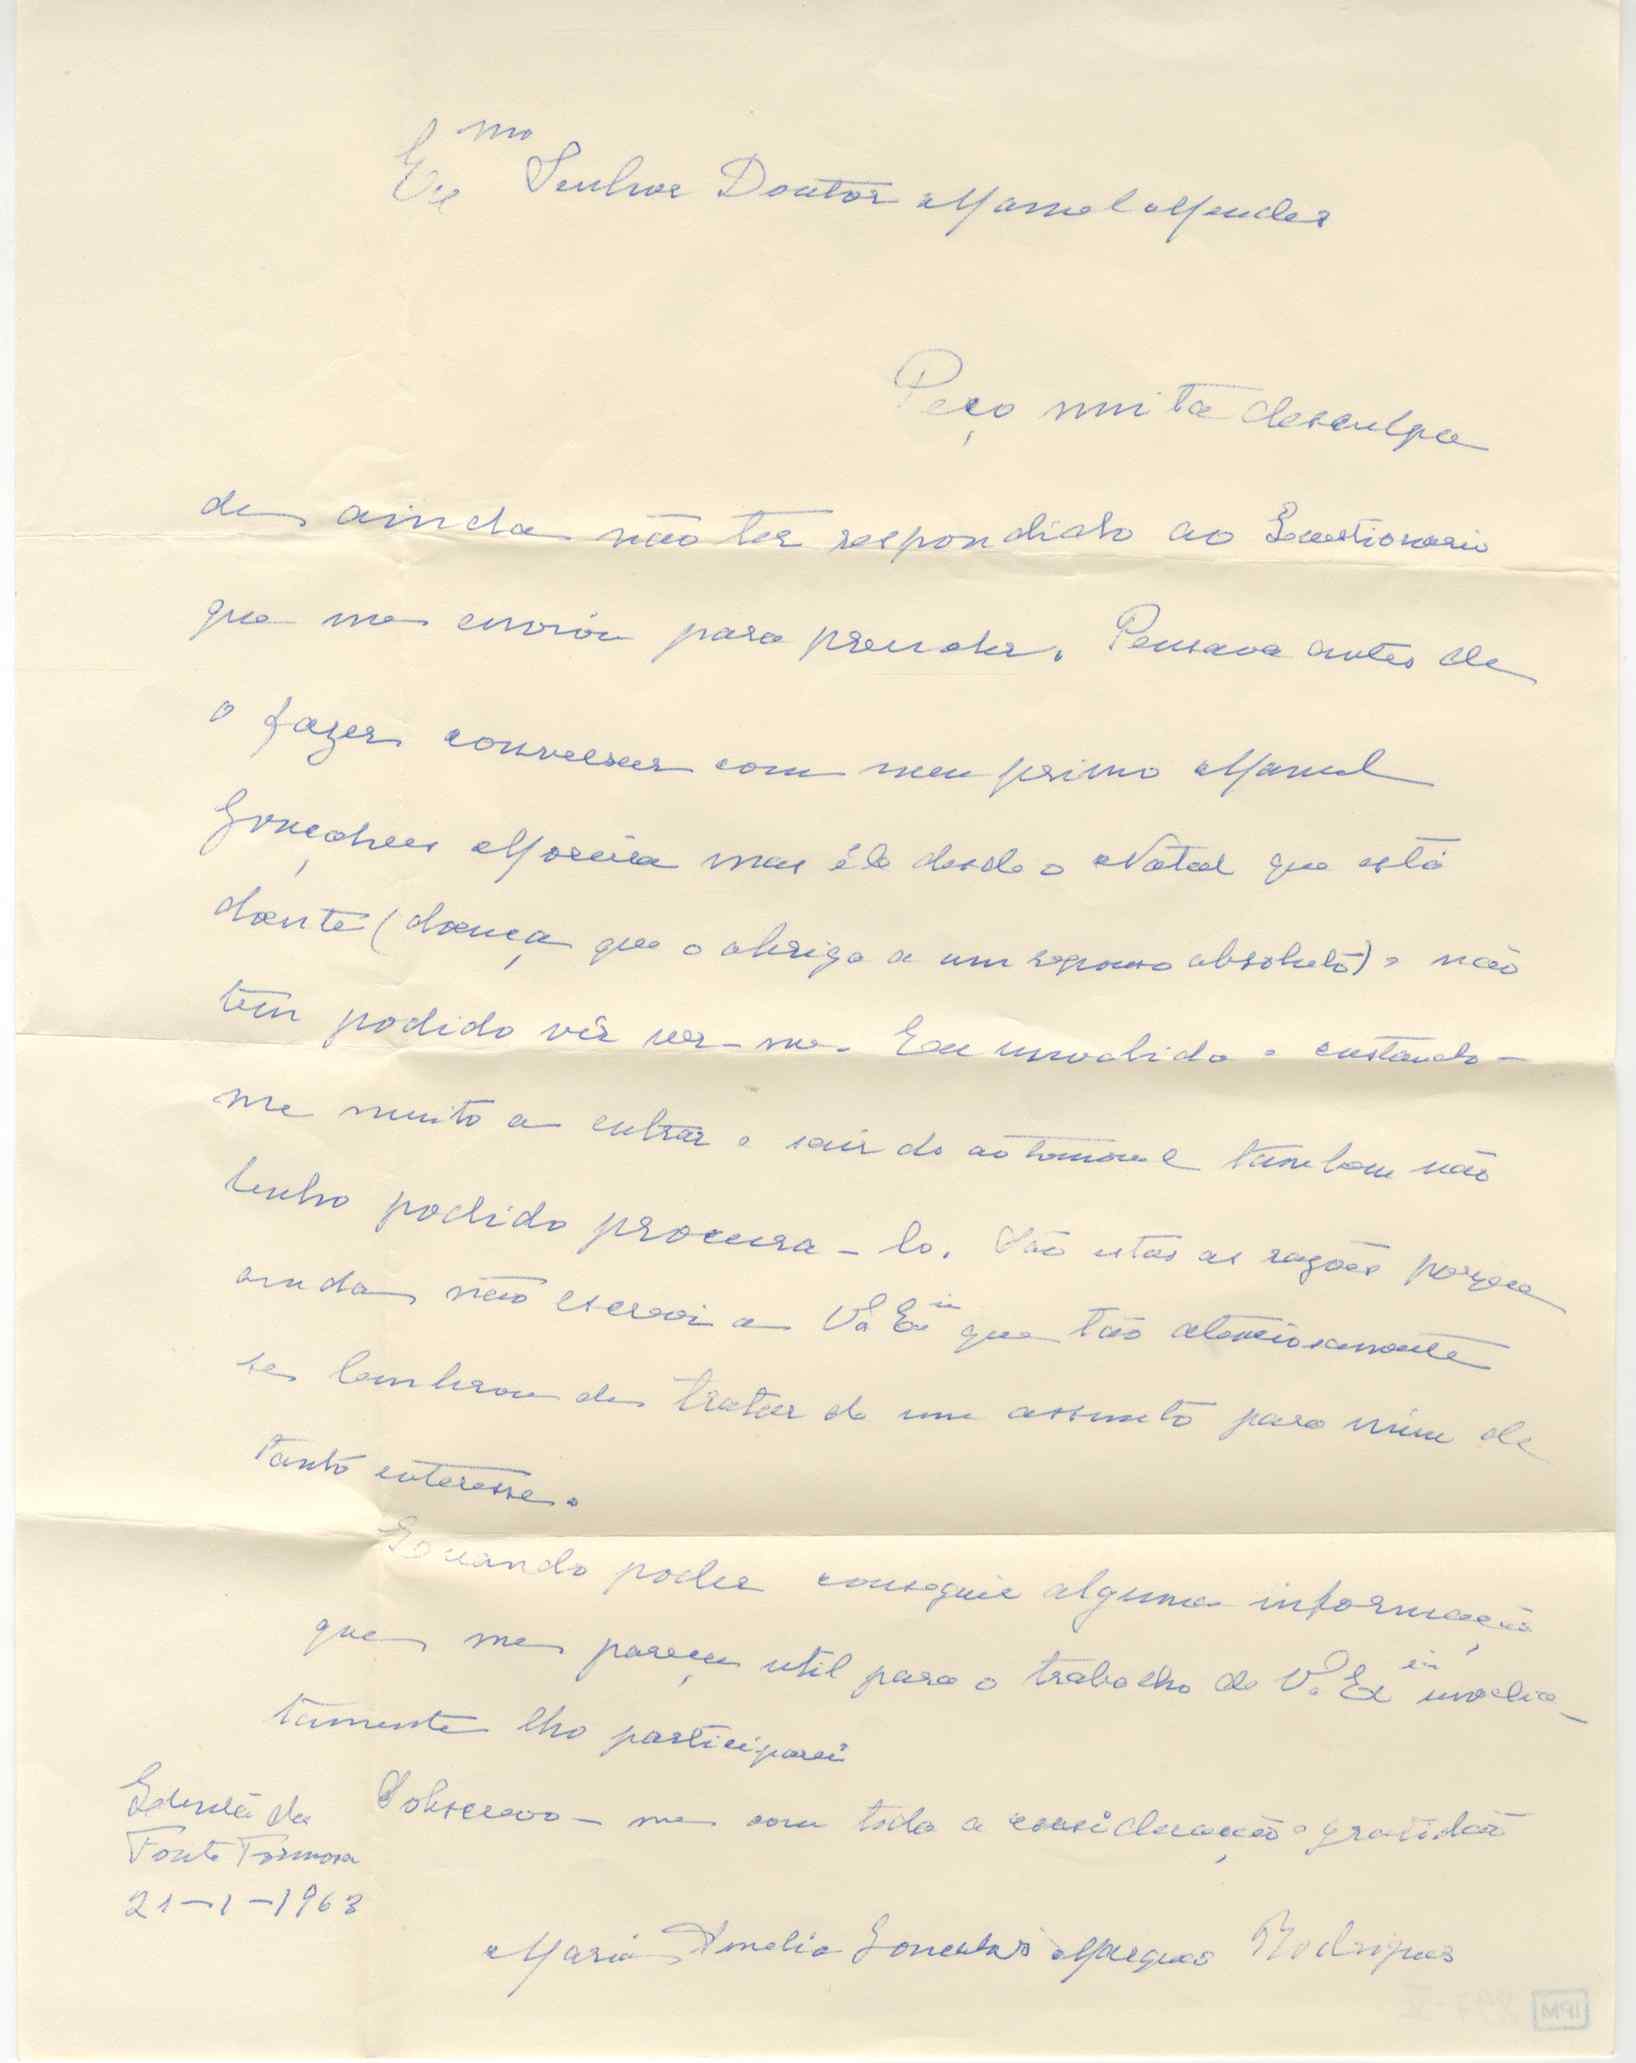 Exmo Senhor Doutor Manuel Mendes
Peço muita desculpa
de ainda não ter respondido ao Questionario
que me enviou para prencher. Pensava antes de
o fazer conversar com meu primo Manuel
Gonçalves Moreira mas êle desde o Natal que está
doente (doença que o obriga a um repouso absoluto) e não
tem podido vir ver-me. Eu invalida e custando-
me muito a entrar e sair do automovel tambem não
tenho podido procura-lo. São estas as razões porque
ainda não escrevi a V.ª Ex.ia que tão atenciosamente
se lembrou de tratar de um assunto para mim de
tanto interesse.
Quando poder conseguir alguma informação
que me pareça util para o trabalho de V.ª Ex.ia imedia-
tamente lho participarei
Subscrevo-me com toda a consideração e gratidão
Quinta da
Fonte Formosa
21-1-1963
Maria Amelia Gonçalves Marques Rodrigues
IPM